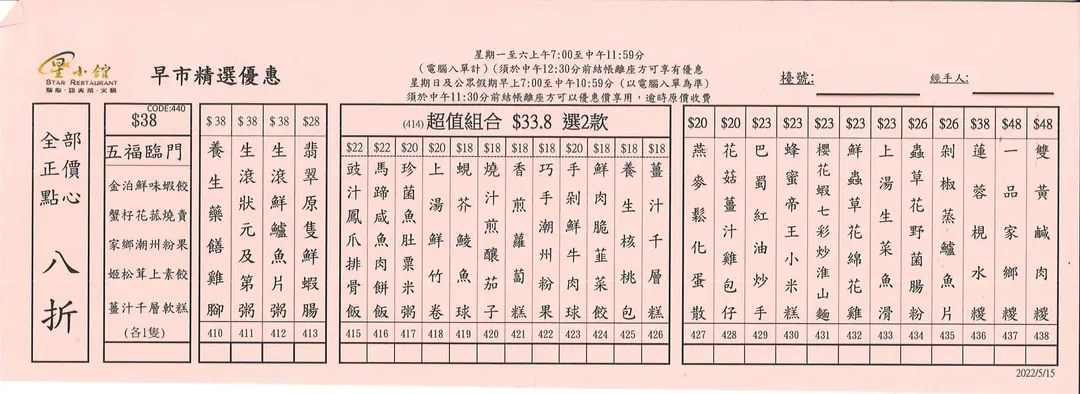 星小館
STAR RESTAURANT
點心·功夫菜·火鍋
早市精選優惠
星期一至六上午7:00至中午11:59分
(電腦入單計)(須於中午12:30分前結帳離座方可享有優惠
星期日及公眾假期早上7:00至中午10:59分(以電腦入單為準)
須於中午11:30分前結帳離座方可以優惠價享用,逾時原價收費
檯號:
經手人:
全部
正價
點心
八折
CODE:440
$38
五福臨門
金泊鮮味蝦餃
蟹籽花菰燒賣
家鄉潮州粉果
姬松茸上素餃
薑汁千層軟糕
(各1隻)
$38 養生藥膳雞腳 410
$38 生滾狀元及第粥 411
$38 生滾鮮鱸魚片粥 412
$28 翡翠原隻鮮蝦腸 413
(414)超值組合 $33.8 選2款
$22 豉汁鳳爪排骨飯 415
$22 馬蹄咸魚肉餅飯 416
$20 珍菌魚肚粟米粥 417
$20 上湯鮮竹卷 418
$18 蜆芥鯪魚球 419
$18 燒汁煎釀茄子 420
$18 香煎蘿蔔糕 421
$18 巧手潮州粉果 422
$20 手剁鮮牛肉球 423
$18 鮮肉脆韮菜餃 424
$18 養生核桃包 425
$18 薑汁千層糕 426
$20 燕麥鬆化蛋散 427
$20 花菇薑汁雞包仔 428
$23 巴蜀紅油炒手 429
$23 蜂蜜帝王小米糕 430
$23 櫻花蝦七彩炒淮山麵 431
$23 鮮蟲草花綿花雞 432
$23 上湯生菜魚滑 433
$26 蟲草花野菌腸粉 434
$26 剁椒蒸鱸魚片 435
$38 蓮蓉梘水糉 436
$48 一品家鄉糉 437
$48 雙黃鹹肉糉 438
2022/5/15